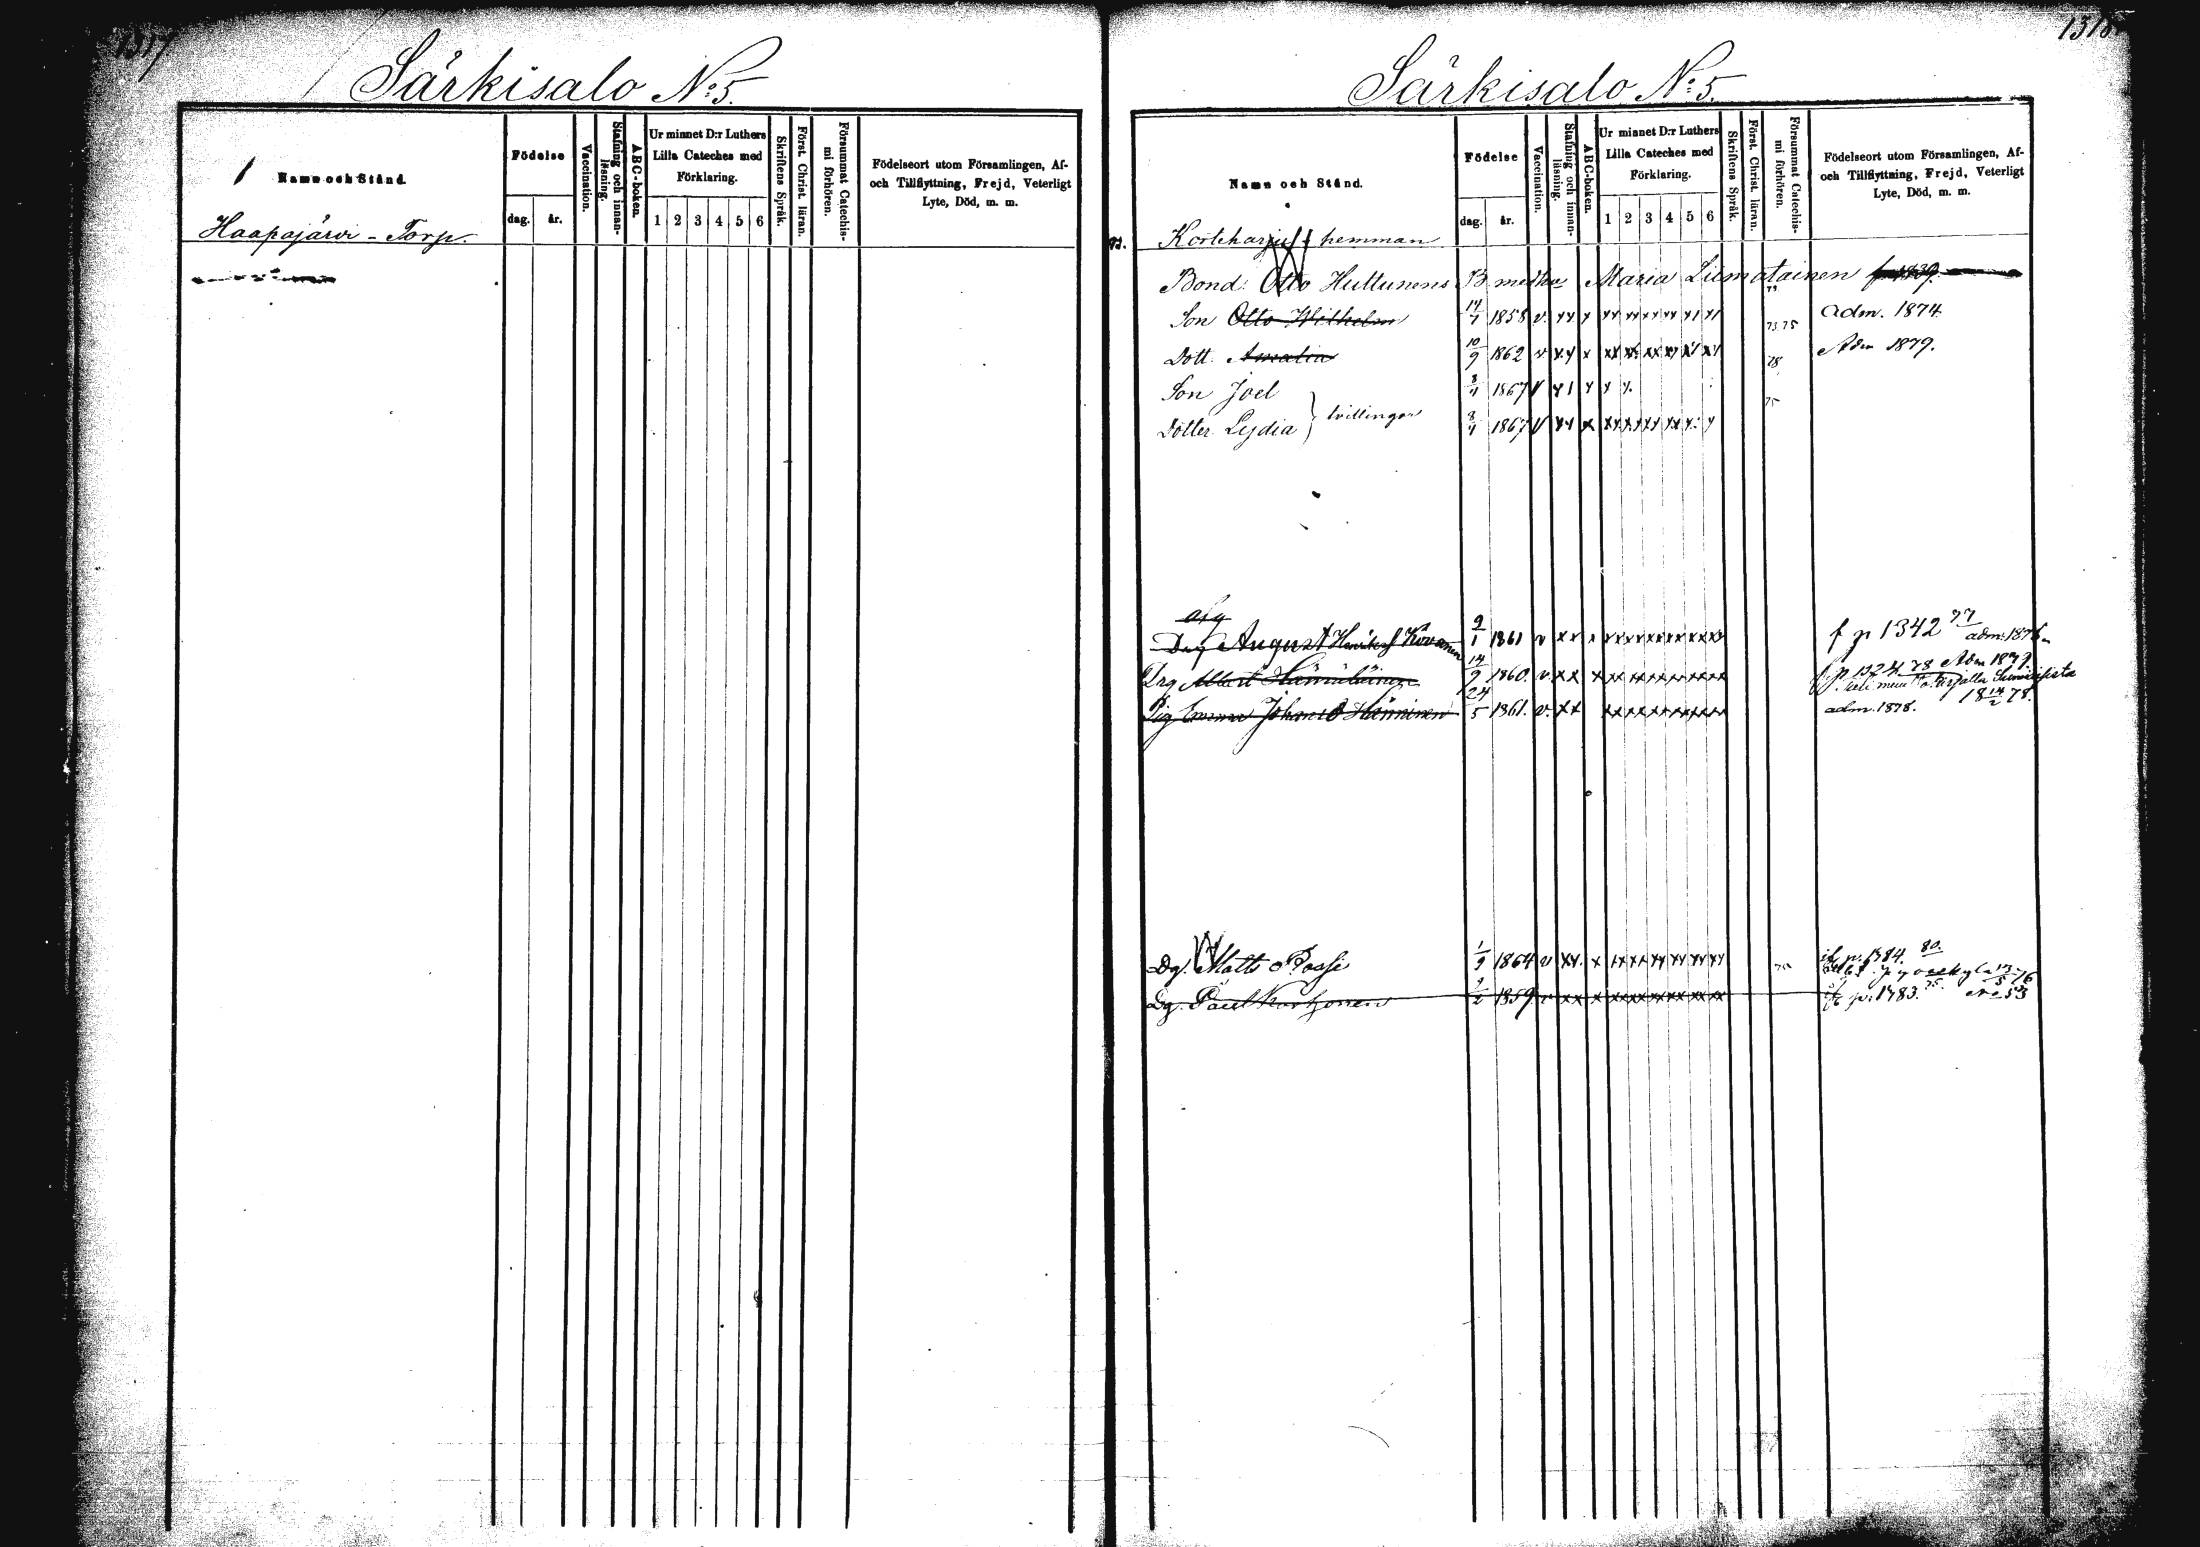 1317
Särkisalo No 5.
Namn och Stånd.
Födelse
dag.
år.
Vaccination.
Stafning och innan-
läsning.
ABC-boken.
Ur minnet D:r Luthers
Lilla Cateches med
Förklaring.
1 2 3 4 5 6
Skriftens Språk.
Först. Christ. läran.
Försummat Catechis-
mi förhören.
Födelseort utom Församlingen, Af-
och Tillflyttning, Frejd, Veterligt
Lyte, Död, m. m.
Haapajärvi - Torp.
1318
Särkisalo No 5.
Namn och Stånd.
Födelse
dag.
år.
Vaccination.
Stafning och innan-
läsning.
ABC-boken.
Ur minnet D:r Luthers
Lilla Cateches med
Förklaring.
1 2 3 4 5 6
Skriftens Språk.
Först. Christ. läran.
Försummat Catechis-
mi förhören.
Födelseort utom Församlingen, Af-
och Tillflyttning, Frejd, Veterligt
Lyte, Död, m. m.
Korteharju hemman
Bond: Otto Huttunens B med hu Maria Liimatainen
Son Otto Wilhelm 1858 v. xx x xx xx xx xx xx 73 75 adm. 1874
Dott. Amalia 10/9 1862 v xx x xx xx xx xx 78 Adm 1879.
Son Joel 1867 v
Dotter Lydia } tvillingar 1867 v xx x 75
Drg August Kovanen 9/1 1861 v xx x xxxxxxxxxxxx f p 1342 77 adm: 1876
Drg Albert Hämäläinen 14/9 1860. v. xx x xx xxxxxxxxxx f. p. 1324 78 Adm 1879.
Pig Emma Johan:d Hänninen 24/5 1861. v. xx xxxxxxxxxxxx adm. 1878. 18 14/2 78.
Dg. Matts Posse 1/9 1864 v xx. x xx xx xx xx xx xx 75 p. 1384. 80.
Dg. Påul Kurhonen 1859 v xx x xxxxxxxxxxxx p. 1783. 75. No 53